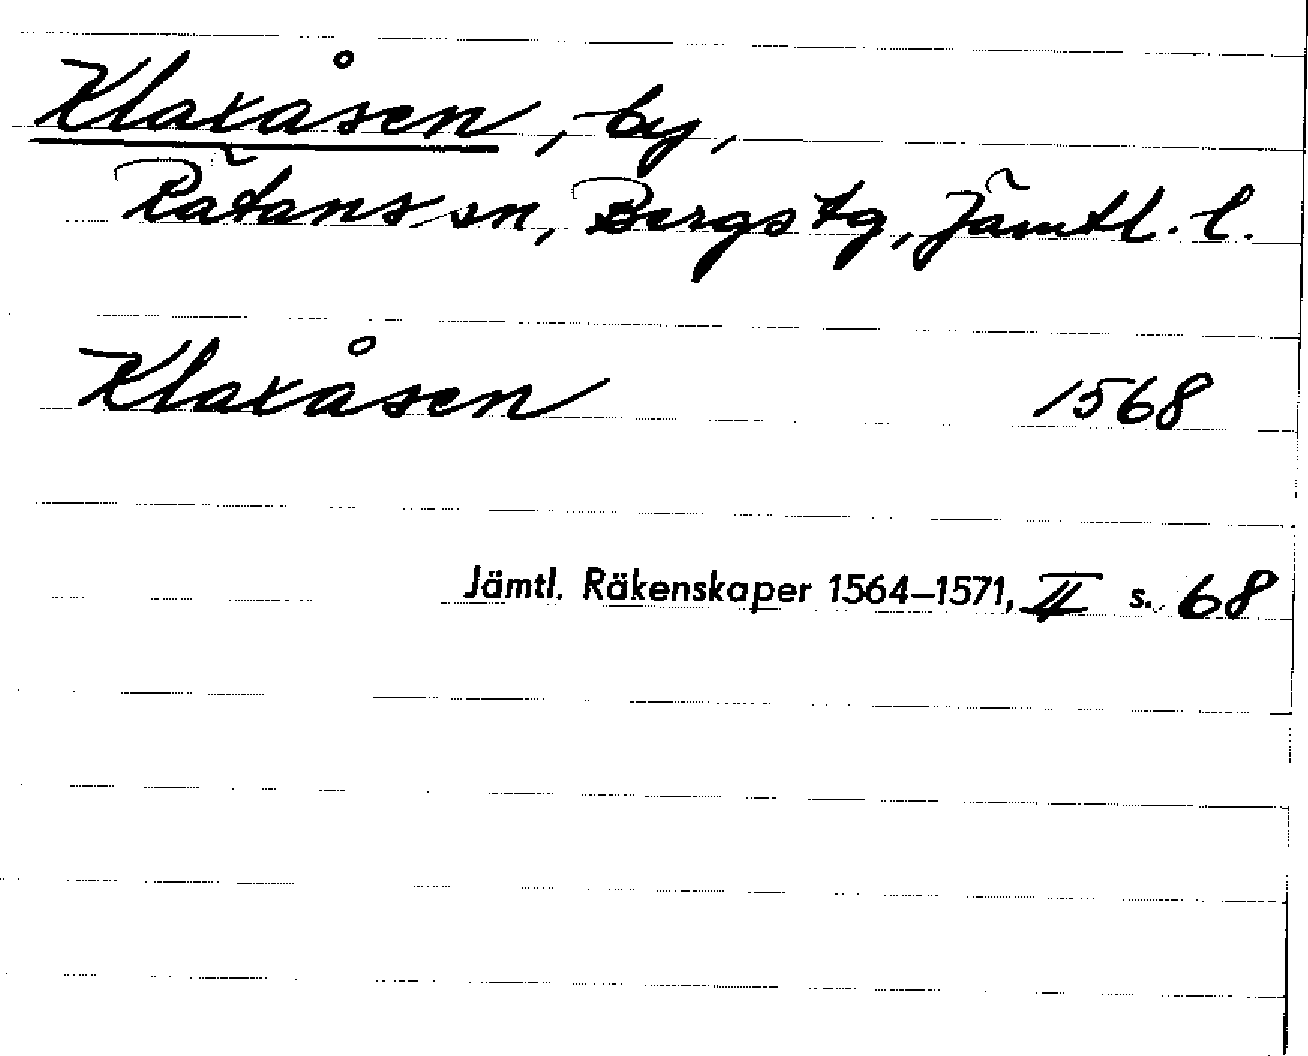 Klaxåsen, by,
Rätans sn, Bergs tg, Jämtl. l.
Klaxåsen 1568
Jämtl. Räkenskaper 1564–1571, II s. 68